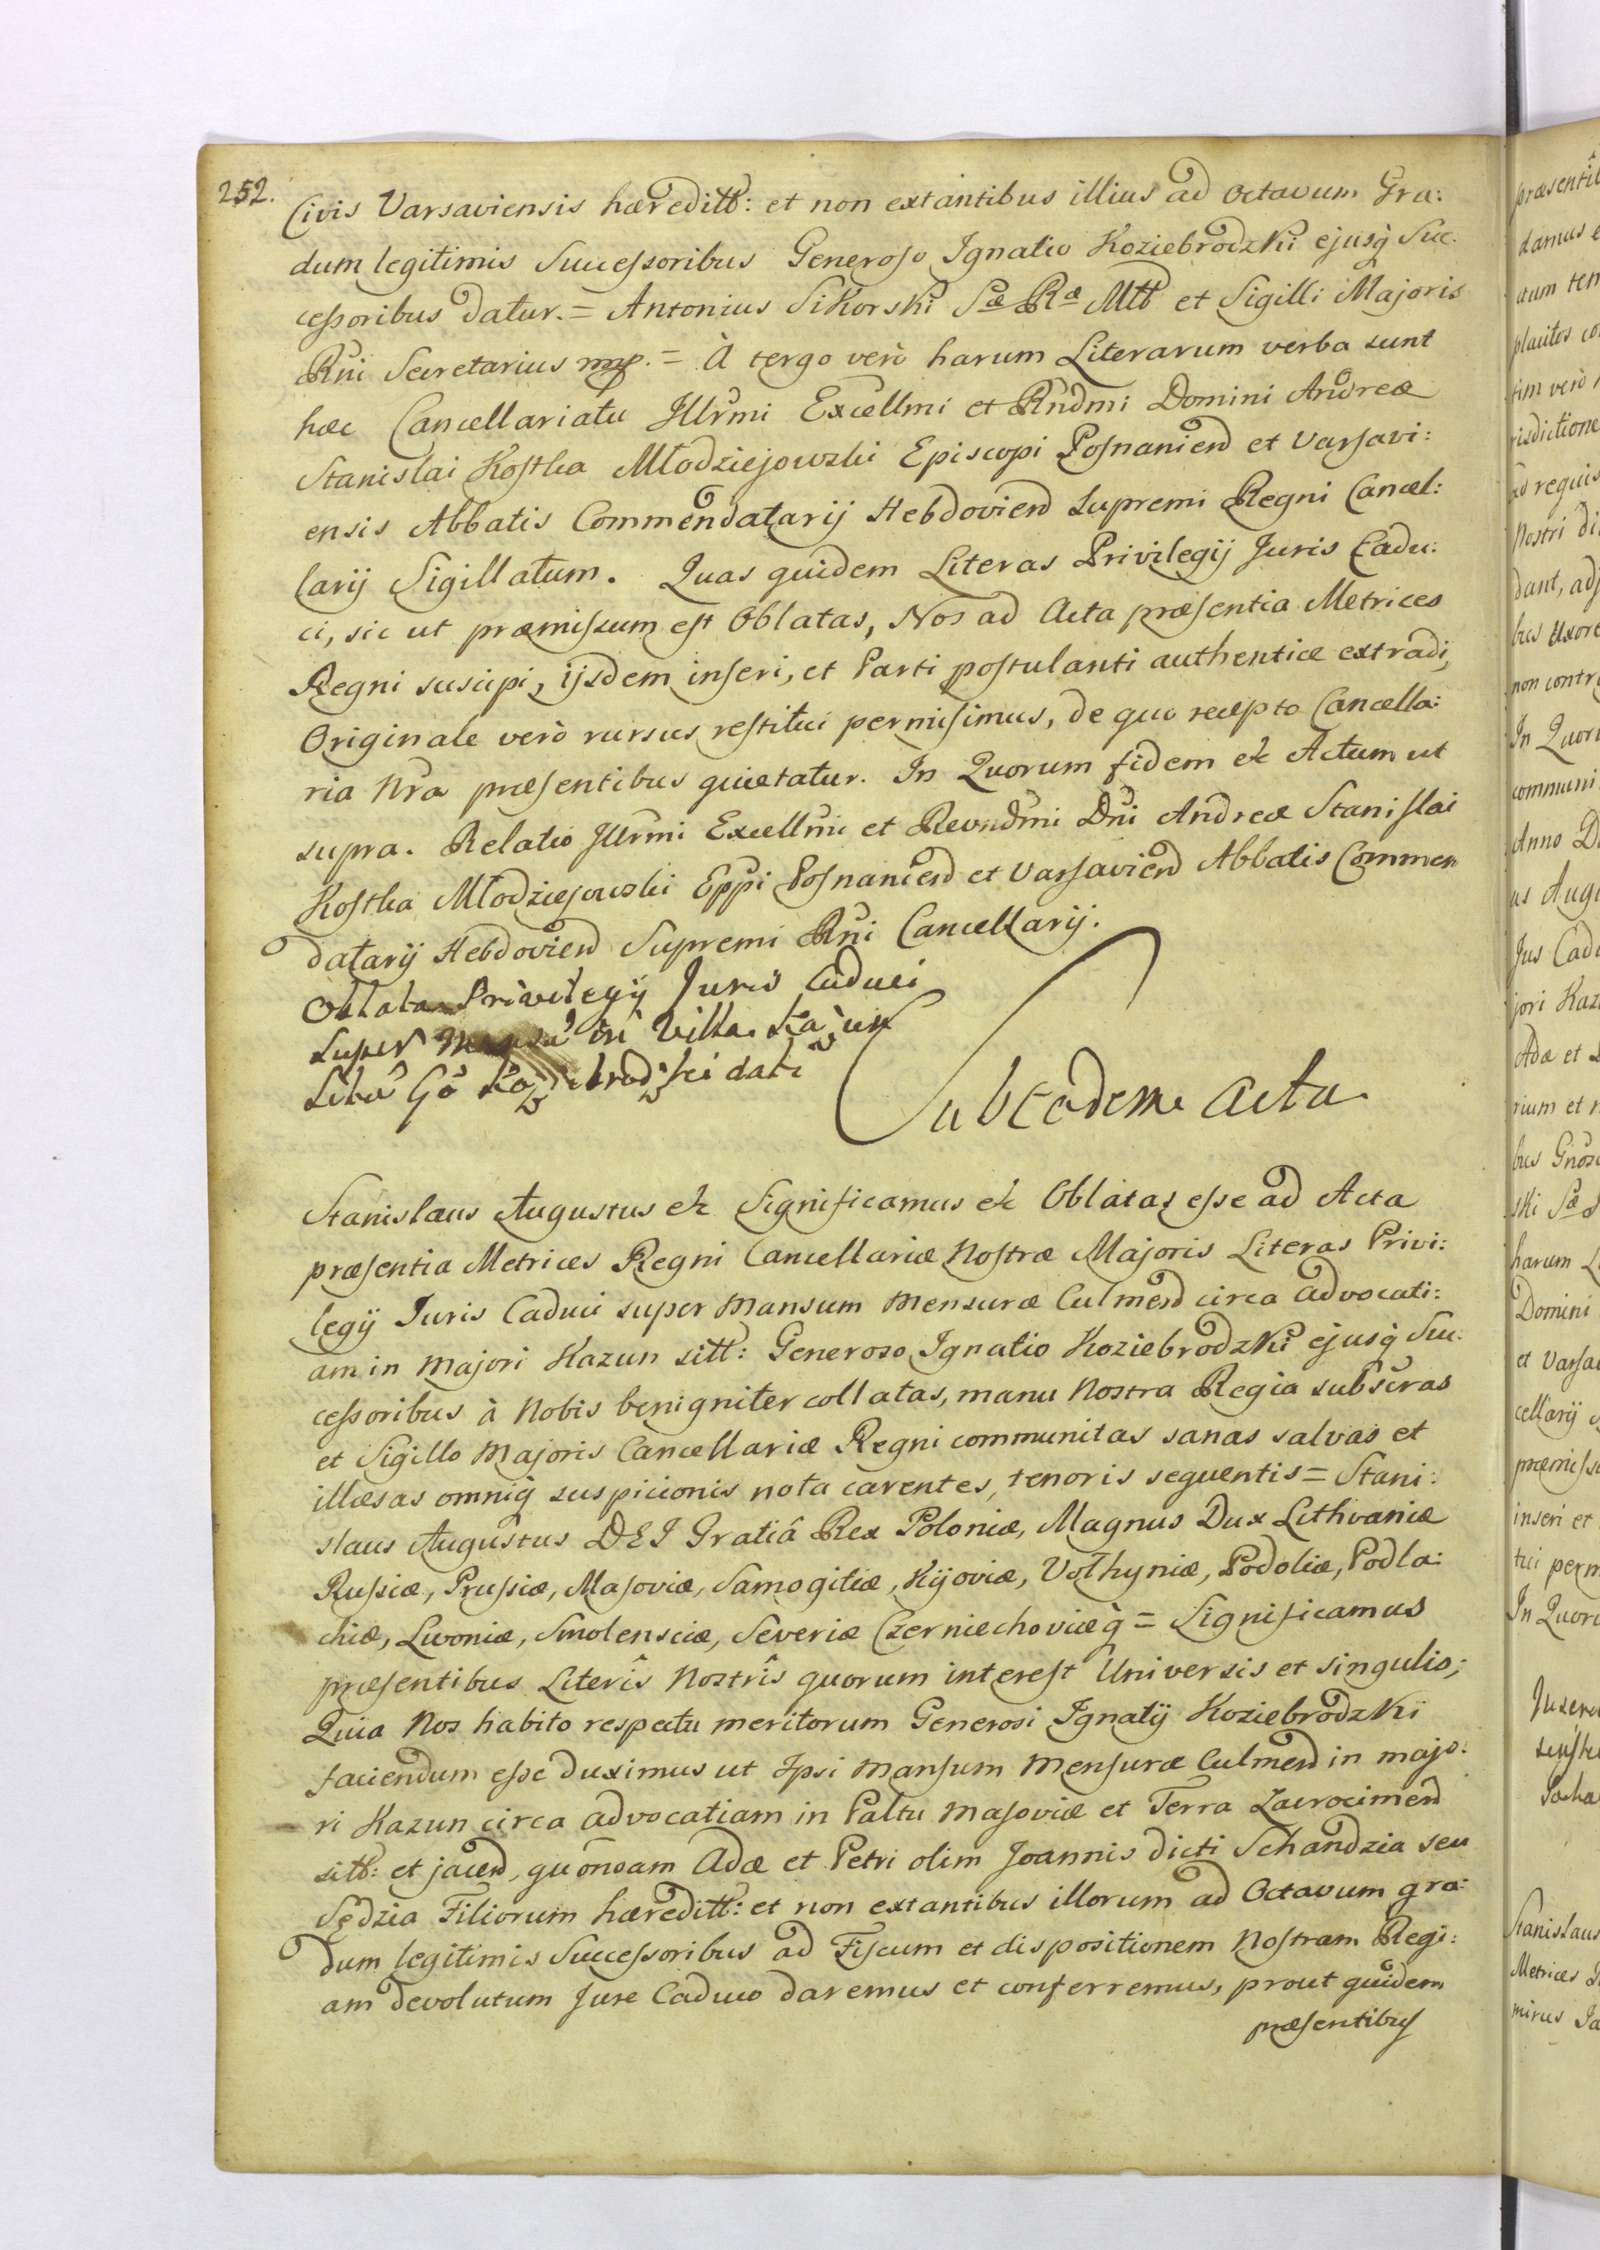 252.
Civis Varsaviensis hæreditt: et non extantibus illius ad octavum Gra:
dum legitimis Successoribus Generoso Ignatio Koziebrodzki ejusq̀ Suc:
cessoribus datur. = Antonius Sikorski Sæ Ræ Mtt et Sigilli Majoris
Rni Secretarius mp. = À tergo verò harum Literarum verba sunt
hæc Cancellariatu Illrmi Excellmi et Rndmi Domini Andreæ
Stanislai Kostka Młodziejowski Episcopi Posnaniend et Varsavi:
ensis Abbatis Commendatarij Hebdoviend Supremi Regni Cancel:
larij Sigillatum. Quas quidem Literas Privilegij Juris Cadu:
ci, sic ut præmissum est Oblatas, Nos ad Acta præsentia Metrices
Regni suscipi, ijsdem inseri, et Parti postulanti authentice extradi,
Originale verò rursus restitui permisimus, de quo recepto Cancella:
ria Nra præsentibus quietatur. In Quorum fidem etc Actum ut
supra. Relatio Illrmi Excellmi et Revndmi Dni Andreæ Stanislai
Kostka Młodziejowski Eppi Posnaniend et Varsaviend Abbatis Commen
datarij Hebdoviend Supremi Rni Cancellarij.
Oblata Privilegij Juris Caduci
super in Villa Kazun
dati
Sub eadem Acta
Stanislaus Augustus etc Significamus etc Oblatas esse ad Acta
præsentia Metrices Regni Cancellariæ Nostræ Majoris Literas Privi:
legij Juris Caduci super Mansum Mensuræ Culmend circa advocati:
am in Majori Kazun sitt: Generoso Ignatio Koziebrodzki ejusq̀ Suc:
cessoribus à Nobis benigniter collatas, manu Nostra Regia subscras
et Sigillo Majoris Cancellariæ Regni communitas sanas salvas et
illæsas omniq̀ suspicionis nota carentes, tenoris sequentis = Stani:
slaus Augustus DEI Gratiâ Rex Poloniæ, Magnus Dux Lithvaniæ
Russiæ, Prussiæ, Masoviæ, Samogitiæ, Kijoviæ, Volhyniæ, Podoliæ, Podla:
chiæ, Livoniæ, Smolensciæ, Severiæ Czerniechoviæq̀ = Significamus
præsentibus Literîs Nostrîs quorum interest Universis et singulis;
Quia Nos habito respectu meritorum Generosi Ignatij Koziebrodzki
faciendum esse duximus ut Ipsi Mansum Mensuræ Culmend in majo:
ri Kazun circa advocatiam in Paltu Masoviæ et Terra Zacrocimend
sitt: et jacend, quonoam Adæ et Petri olim Joannis dicti Schandzia seu
Sędzia Filiorum hæreditt: et non extantibus illorum ad Octavum gra:
dum legitimis Successoribus ad Fiscum et dispositionem Nostram Regi:
am devolutum Jure Caduco daremus et conferremus, prout quidem
præsentibus